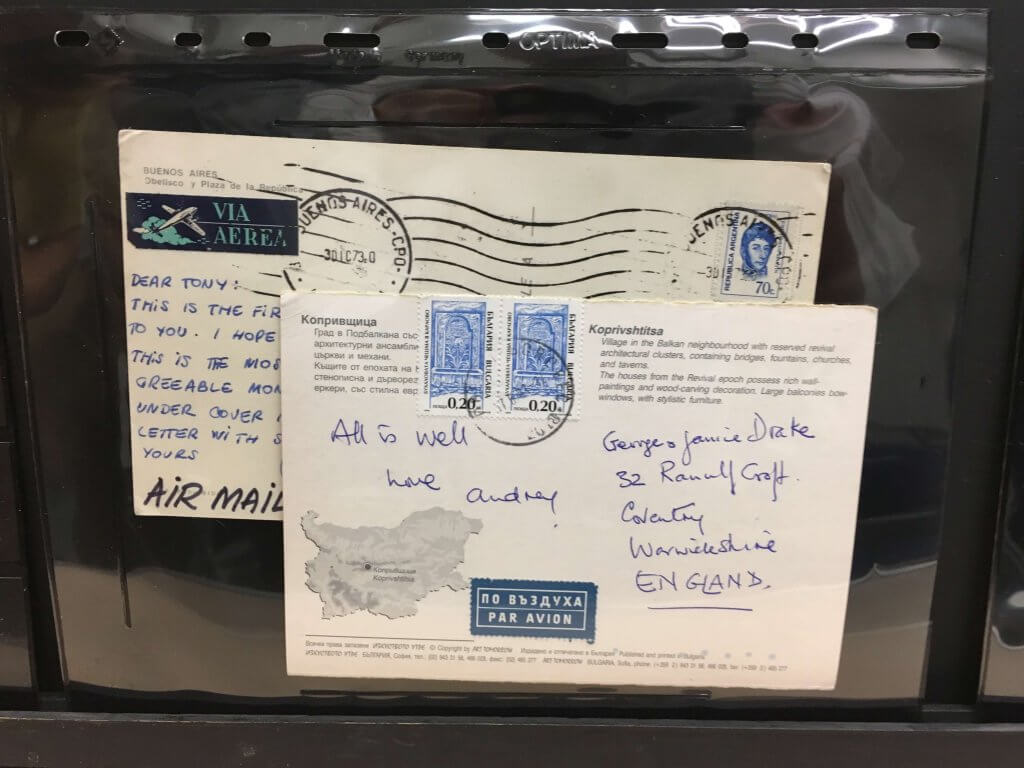 OPTIMA
BUENOS AIRES
Obelisco y Plaza de la República
VIA
AEREA
BUENOS AIRES-CPO
-3DIC73.0
REPUBLICA ARGENTINA
70c.
DEAR TONY:
THIS IS THE FIR
TO YOU. I HOPE
THIS IS THE MOS
GREEABLE MON
UNDER COVER
LETTER WITH S
YOURS
AIR MAIL
Копривщица
Град в Подбалкана със
архитектурни ансамбли
църкви и механи.
Къщите от епохата на
стенописна и дърворез
еркери, със стилна евр
БЪЛГАРИЯ
BULGARIA
0.20
БЪЛГАРИЯ
BULGARIA
0.20
Koprivshtitsa
Village in the Balkan neighbourhood with reserved revival
architectural clusters, containing bridges, fountains, churches,
and taverns.
The houses from the Revival epoch possess rich wall-
paintings and wood-carving decoration. Large balconies bow-
windows, with stylistic furniture.
All is well
love
Audrey
George & Janice Drake
32 Ranulf Croft.
Coventry
Warwickshire
ENGLAND.
Копривщица
Koprivshtitsa
ПО ВЪЗДУХА
PAR AVION
Всички права запазени ИЗКУСТВОТО УТРЕ © Copyright by ART TOMORROW Издадено и отпечатано в България Published and printed in Bulgaria
ИЗКУСТВОТО УТРЕ БЪЛГАРИЯ, София, тел.: (02) 943 31 56, 466 025, факс: (02) 465 277 ART TOMORROW BULGARIA, Sofia, phone: (+359 2) 943 31 56, 466 025, fax: (+359 2) 465 277